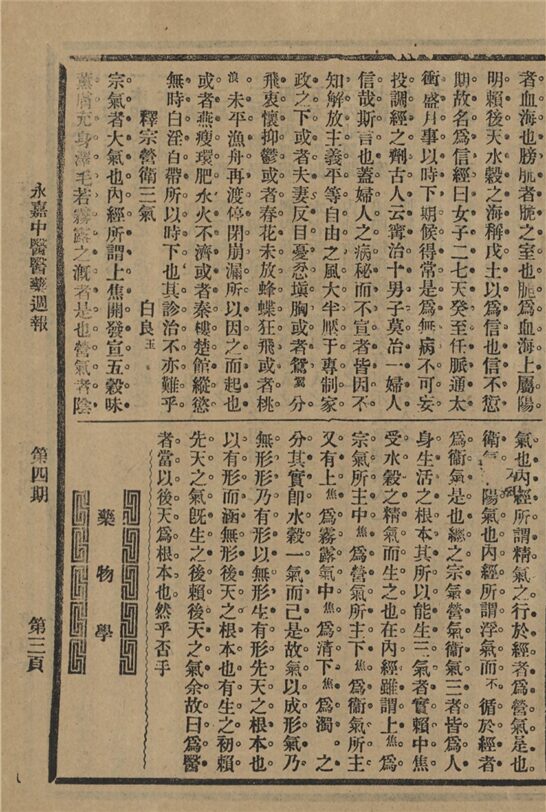 者血海也膀胱者脏之室也脏爲血海上屬陽
明賴後天水穀之海稱戊土以爲信也信不愆
期故名爲信經曰女子二七天癸至任脈通太
衝盛月事以時下期候得常是爲無病不可妄
投調經之劑古人云寗治十男子莫治一婦人
信哉斯言也蓋婦人之病秘而不宣者皆因不
知解放主義平等自由之風大半壓于專制家
政之下或者夫妻反目憂忿塡胸或者鴛鴦分
飛衷懷抑鬱或者春花未放蜂蝶狂飛或者桃
浪未平漁舟再渡停閉崩漏所以因之而起也
或者燕瘦環肥水火不濟或者秦樓楚館縱慾
無時白淫白帶所以時下也其診治不亦難乎
釋宗營衛三氣
白良玉
宗氣者大氣也內經所謂上焦開發宣五穀味
薰膚充身澤毛若霧露之漑者是也營氣者陰
氣也內經所謂精氣之行於經者爲營氣是也
衛氣 陽氣也內經所謂浮氣而不循於經者
爲衛氣是也總之宗氣營氣衛氣三者皆爲人
身生活之根本其所以能生三氣者實賴中焦
受水穀之精氣而生之也在內經雖謂上焦爲
宗氣所主中焦爲營氣所主下焦爲衛氣所主
又有上焦爲霧露氣中焦爲清下焦爲濁。之
分其實卽水穀一氣而已是故氣以成形氣乃
無形形乃有形以無形生有形先天之根本也
以有形而涵無形後天之根本也有生之初賴
先天之氣旣生之後賴後天之氣余故曰爲醫
者當以後天爲根本也然乎否乎
藥物學
永嘉中醫醫藥週報
第四期
第三頁